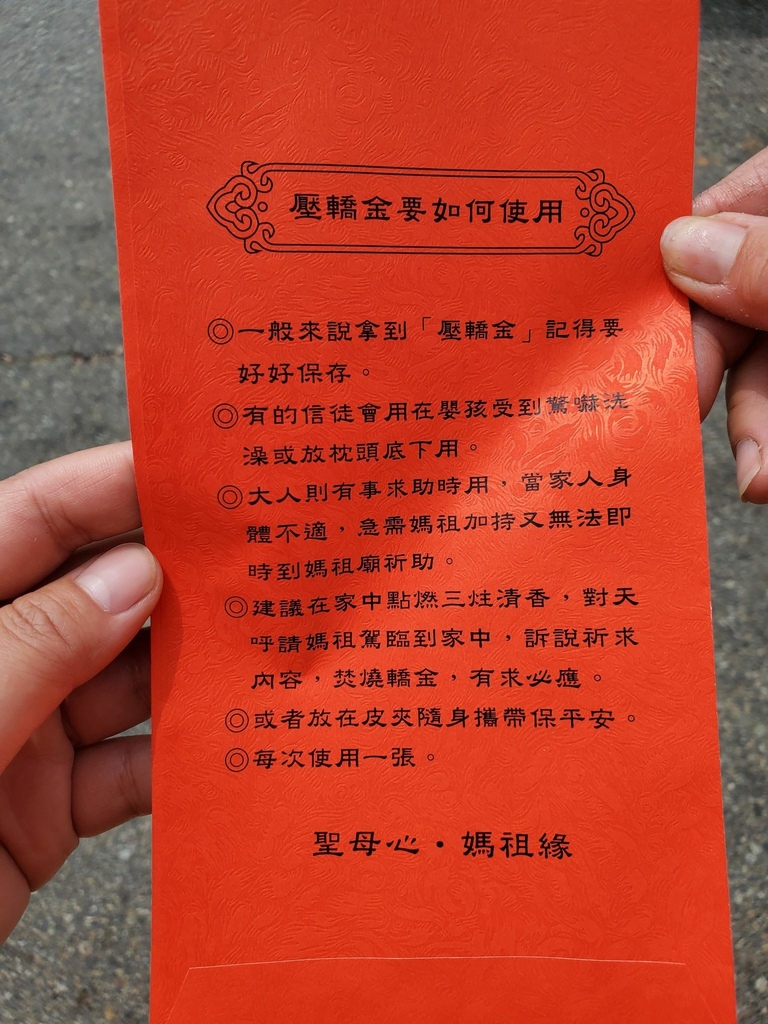 壓轎金要如何使用
◎一般來說拿到「壓轎金」記得要
好好保存。
◎有的信徒會用在嬰孩受到驚嚇洗
澡或放枕頭底下用。
◎大人則有事求助時用，當家人身
體不適，急需媽祖加持又無法即
時到媽祖廟祈助。
◎建議在家中點燃三炷清香，對天
呼請媽祖駕臨到家中，訴說祈求
內容，焚燒轎金，有求必應。
◎或者放在皮夾隨身攜帶保平安。
◎每次使用一張。
聖母心・媽祖緣